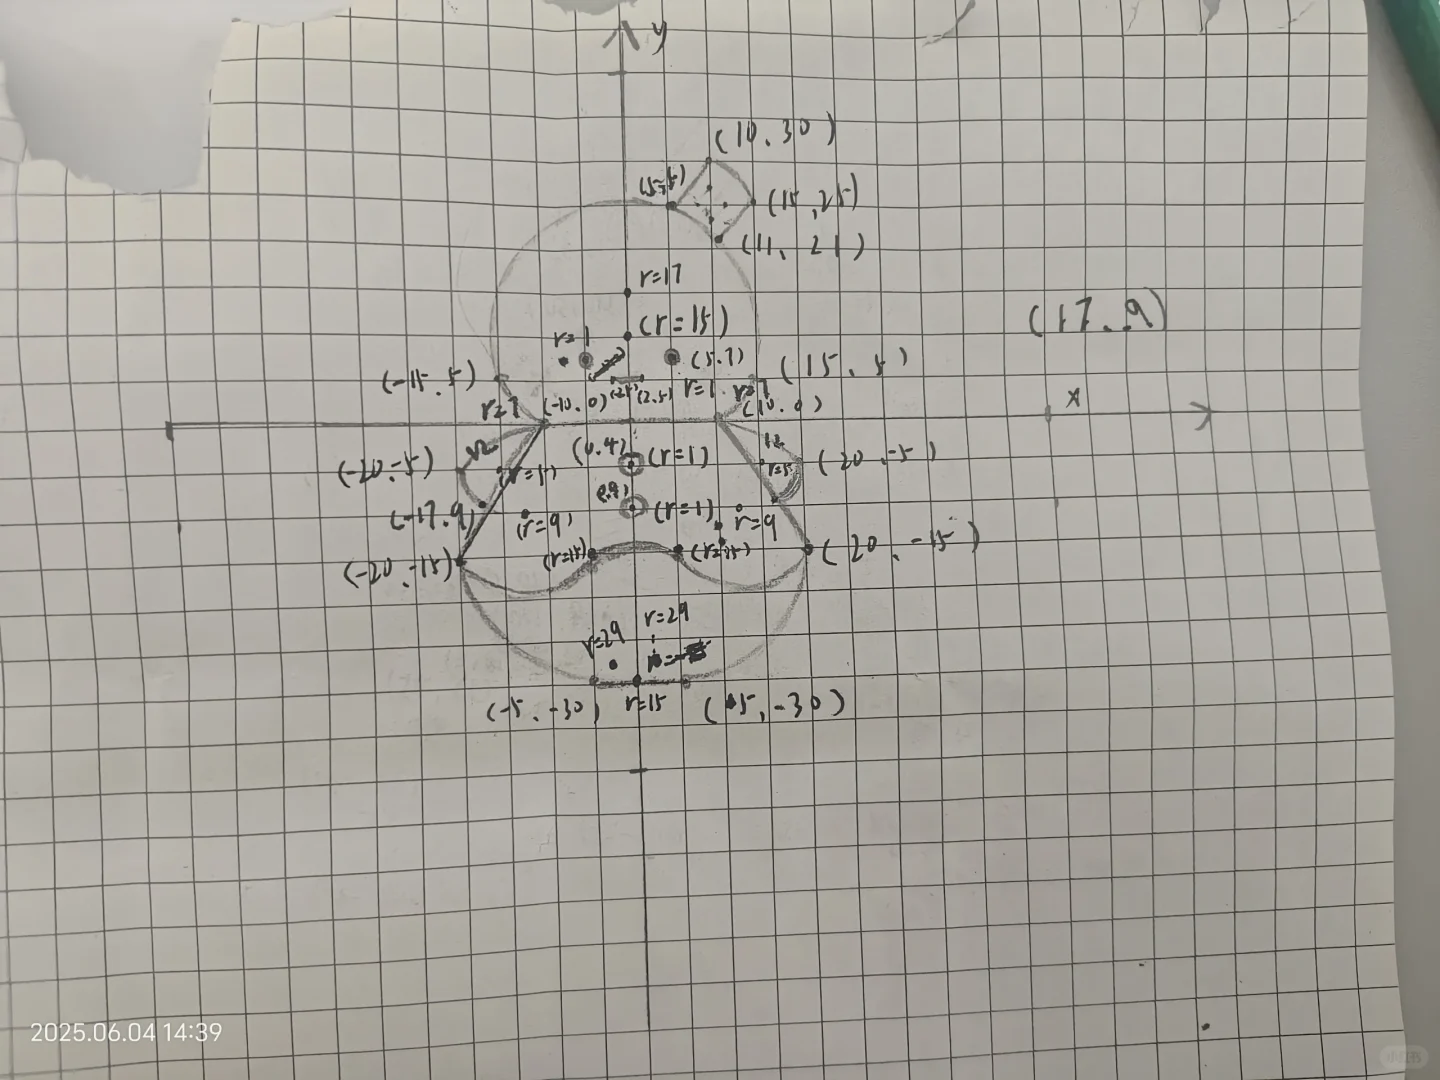 y
(10.30)
(15,25)
(11, 21)
r=17
(r=15)
(17.9)
r=1
(5.7)
(-15.5)
(15.5)
r=7
(-10.0)
(2.5)
r=1
r=7
(10.0)
x
(0.4)
(r=1)
12
(-20.-5)
(20.-5)
(r=1)
(-17.9)
(r=9)
r=9
(-20.-15)
(r=15)
(r=15)
(20.-15)
r=29
r=29
(-5.-30)
r=15
(5,-30)
2025.06.04 14:39
小红书